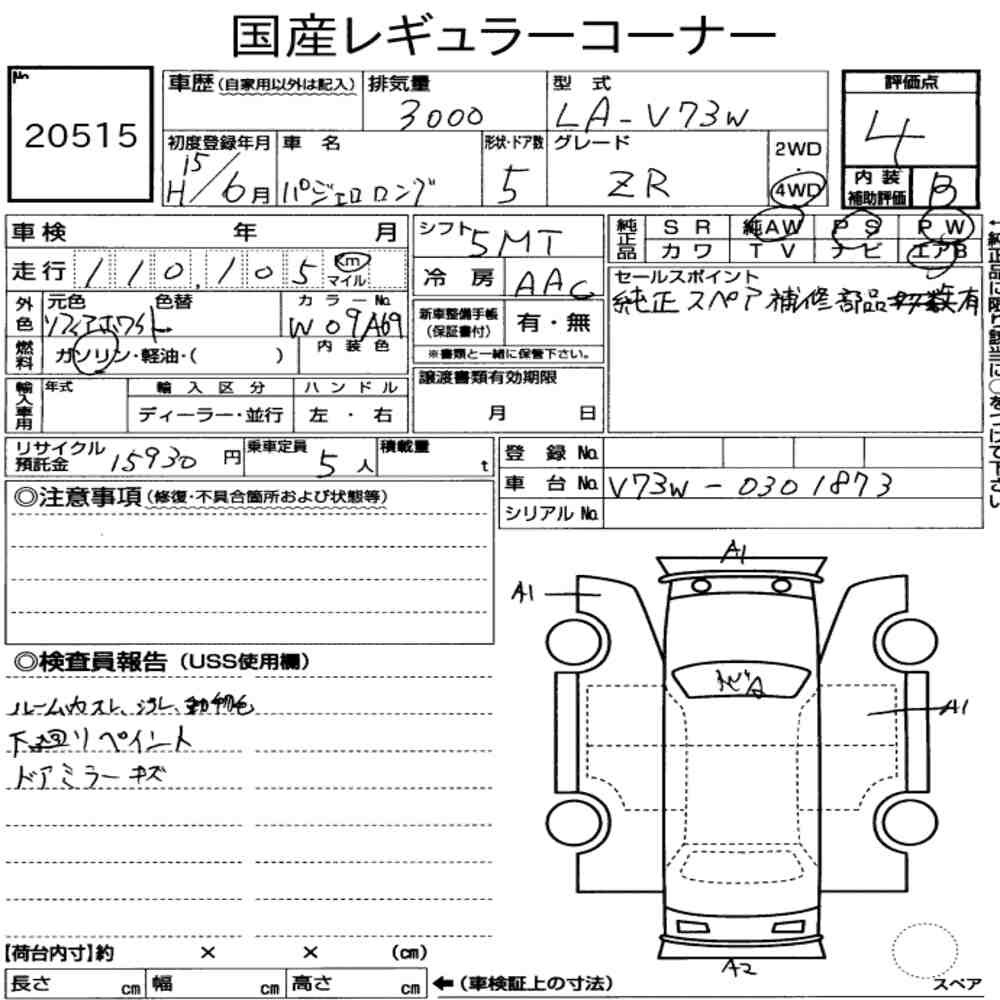 国産レギュラーコーナー
No.
20515
車歴 (自家用以外は記入)
排気量
3000
型 式
LA-V73W
評価点
4
初度登録年月
H 15/6月
車 名
パジェロロング
形状・ドア数
5
グレード
ZR
2WD
・
4WD
内 装
補助評価
B
車検 年 月
シフト
5MT
純正品
SR 純AW PS PW
カワ TV ナビ エアB
走行 110,105 Km
マイル
冷房
AAC
セールスポイント
純正スペア補修部品多数有
←純正品に限り該当に○をつけて下さい
外色
元色 色替
カラーNo.
W09A69
新車整備手帳
(保証書付)
有・無
※書類と一緒に保管下さい。
燃料
ガソリン・軽油・( )
内装色
輸入車用
年式
輸入区分
ディーラー・並行
ハンドル
左・右
譲渡書類有効期限
月 日
リサイクル
預託金 15930 円
乗車定員
5 人
積載量
t
登録No.
車台No. V73W-0301873
シリアルNo.
◎注意事項 (修復・不具合箇所および状態等)
◎検査員報告 (USS使用欄)
下廻りペイント
ドアミラーキズ
A1
A1
A1
A2
【荷台内寸】約 × × (cm)
長さ cm 幅 cm 高さ cm ←(車検証上の寸法)
スペア